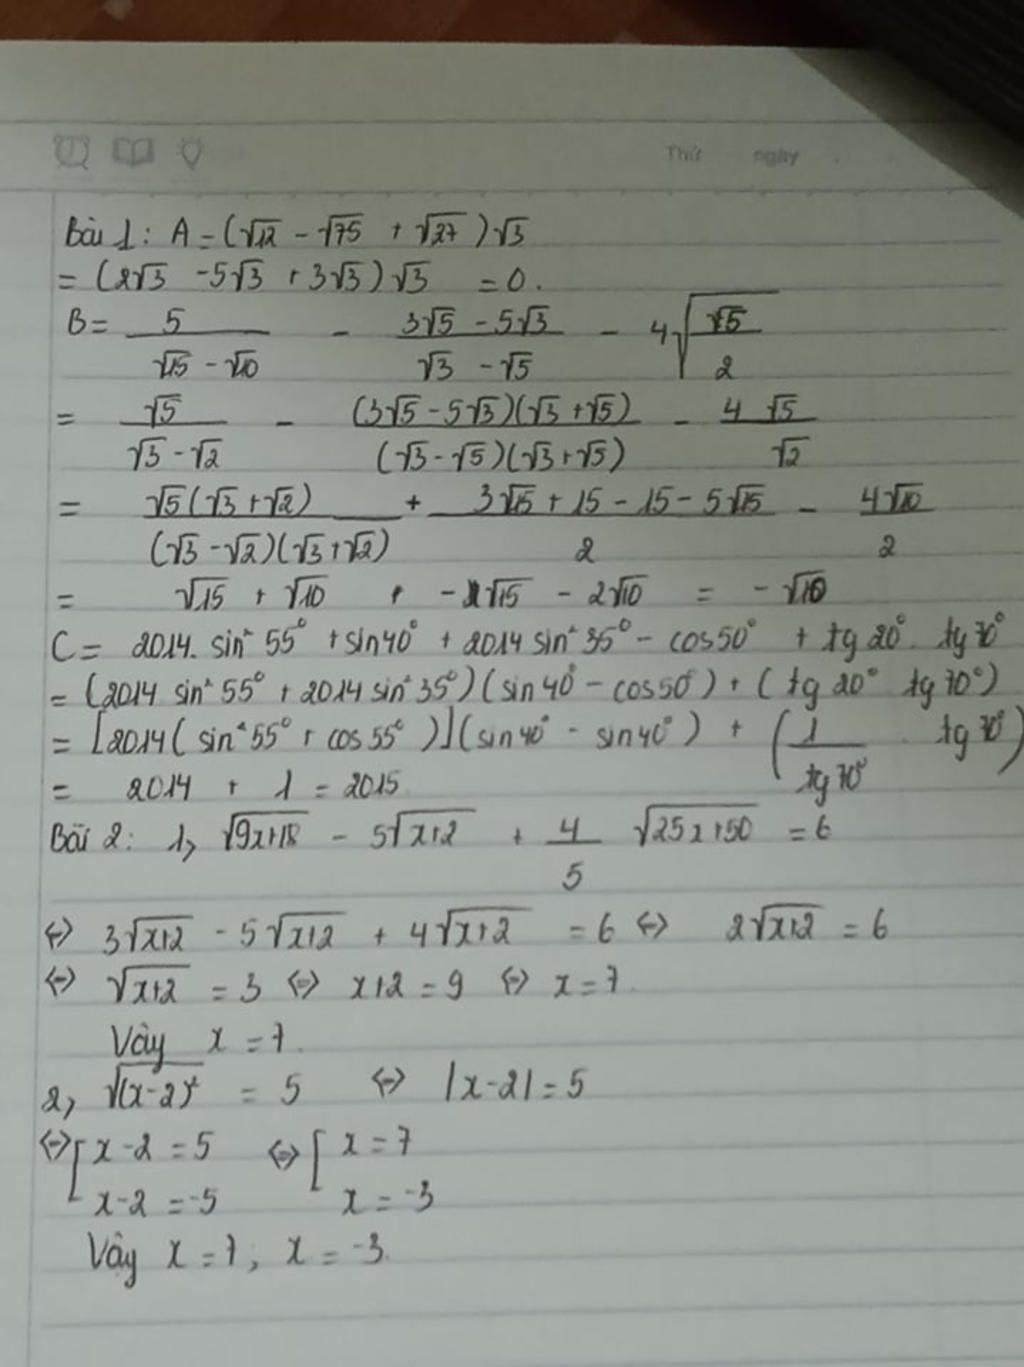 Thứ ngày
Bài 1: A = (√12 - √75 + √27)√3
= (2√3 - 5√3 + 3√3)√3 = 0.
B = 5/(√15 - √10) - (3√5 - 5√3)/(√3 - √5) - 4√(√5/2)
= √5/(√3 - √2) - (3√5 - 5√3)(√3 + √5)/(√3 - √5)(√3 + √5) - 4√5/√2
= √5(√3 + √2)/(√3 - √2)(√3 + √2) + (3√15 + 15 - 15 - 5√15)/2 - 4√10/2
= √15 + √10 + -1√15 - 2√10 = -√10
C = 2014. sin² 55° + sin 40° + 2014 sin² 35° - cos 50° + tg 20°. tg 70°
= (2014 sin² 55° + 2014 sin² 35°)(sin 40° - cos 50°) + (tg 20° tg 70°)
= [2014(sin² 55° + cos 55°)](sin 40° - sin 40°) + (1/tg 70° . tg 70°)
= 2014 + 1 = 2015
Bài 2: 1, √(9x+18) - 5√(x+2) + 4/5 √(25x+50) = 6
⇔ 3√(x+2) - 5√(x+2) + 4√(x+2) = 6 ⇔ 2√(x+2) = 6
⇔ √(x+2) = 3 ⇔ x+2 = 9 ⇔ x = 7.
Vậy x = 7.
2, √(x-2)² = 5 ⇔ |x-2| = 5
⇔ [ x-2 = 5 ⇔ [ x = 7
x-2 = -5 x = -3
Vậy x = 7; x = -3.